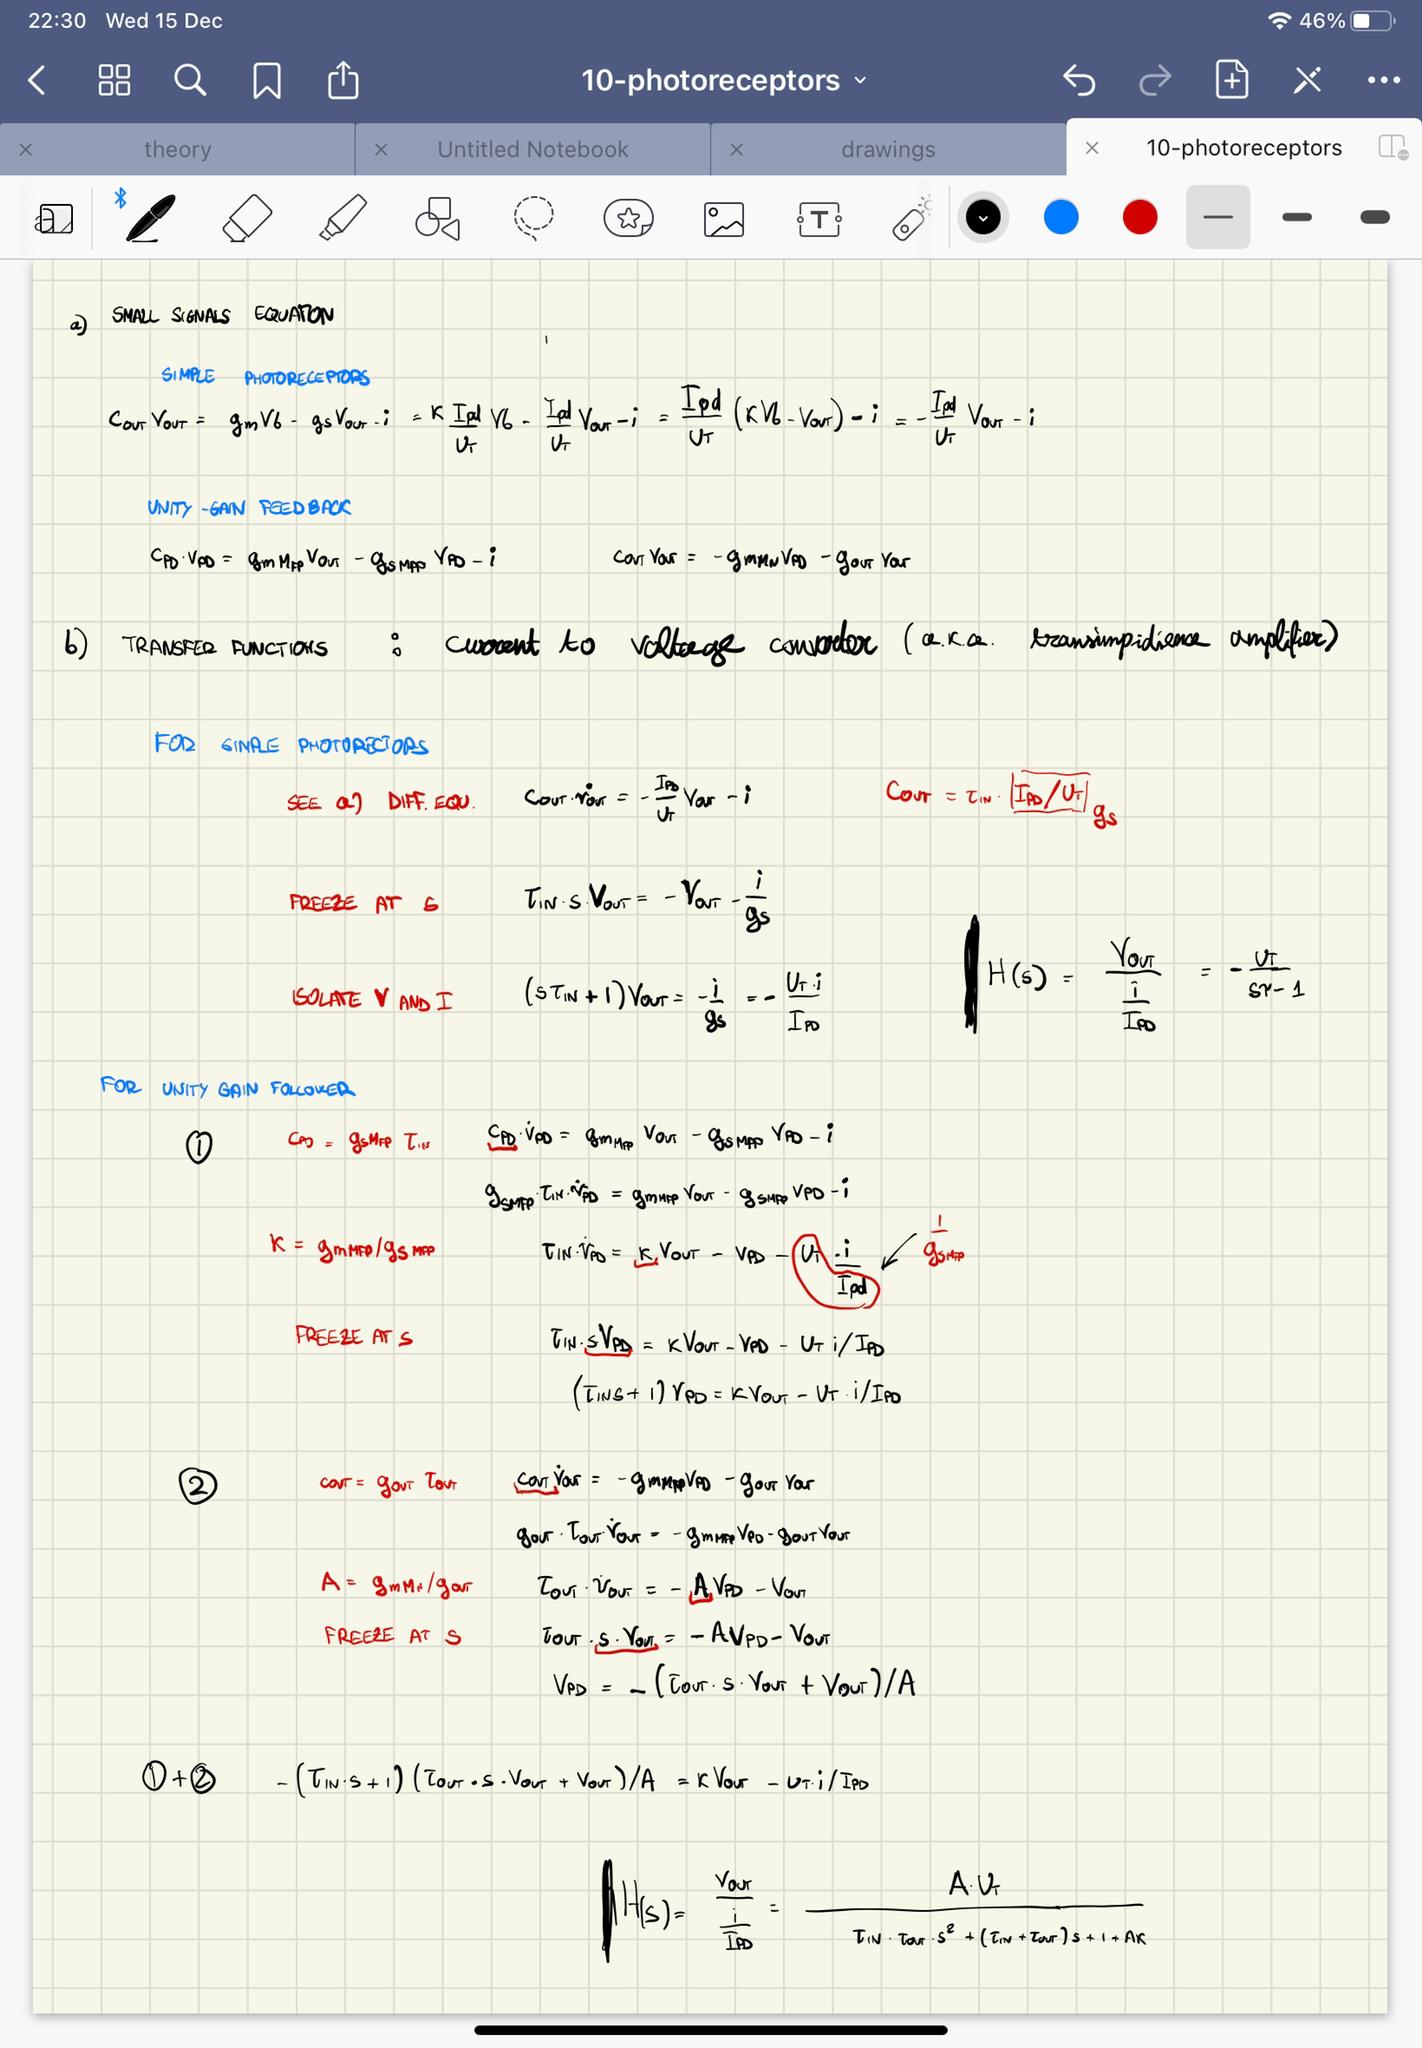 22:30 Wed 15 Dec 46%
10-photoreceptors
theory Untitled Notebook drawings 10-photoreceptors
a) SMALL SIGNALS EQUATION
SIMPLE PHOTORECEPTORS
COUT VOUT = gmVb - gsVOUT - i = K Ipd/UT Vb - Ipd/UT VOUT - i = Ipd/UT (KVb - VOUT) - i = - Ipd/UT VOUT - i
UNITY-GAIN FEEDBACK
CPD·VPD = gmMFP VOUT - gsMFP VPD - i COUT VOUT = -gmMN VPD - gOUT VOUT
b) TRANSFER FUNCTIONS : current to voltage convertor (a.k.a. transimpidience amplifier)
FOR SIMPLE PHOTORECTORS
SEE a) DIFF. EQU. COUT·v̇OUT = - IPD/UT VOUT - i COUT = τIN · IPD/UT gs
FREEZE AT s τIN·s·VOUT = - VOUT - i/gs
ISOLATE V AND I (sτIN+1)VOUT = - i/gs = - UT·i/IPD H(s) = VOUT / (i/IPD) = - UT/(sτ-1)
FOR UNITY GAIN FOLLOWER
① CPD = gsMFP τIN CPD·V̇PD = gmMFP VOUT - gsMFP VPD - i
gsMFP·τIN·V̇PD = gmMFP VOUT - gsMFP VPD - i
K = gmMFP/gsMFP τIN·V̇PD = K VOUT - VPD - UT·i/Ipd 1/gsMFP
FREEZE AT s τIN·sVPD = KVOUT - VPD - UT i/IPD
(τINS+1)VPD = KVOUT - UT·i/IPD
② COUT = gOUT τOUT COUT V̇OUT = -gmMFP VPD - gOUT VOUT
gOUT·τOUT·V̇OUT = -gmMFP VPD - gOUT VOUT
A = gmMN/gOUT τOUT·V̇OUT = - AVPD - VOUT
FREEZE AT s τOUT·s·VOUT = -AVPD - VOUT
VPD = -(τOUT·s·VOUT + VOUT)/A
①+② -(τIN·s+1)(τOUT·s·VOUT + VOUT)/A = KVOUT - UT·i/IPD
H(s) = VOUT / (i/IPD) = A·UT / (τIN·τOUT·s² + (τIN+τOUT)s + 1 + AK)